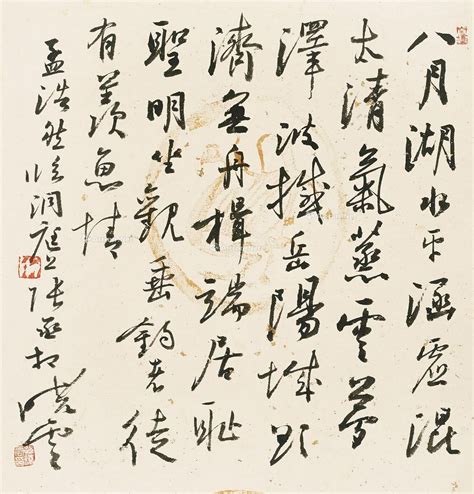 八月湖水平涵虛混
太清氣蒸雲夢
澤波撼岳陽城欲
濟無舟楫端居恥
聖明坐觀垂釣者徒
有羨魚情
孟浩然臨洞庭上張丞相 曉雲